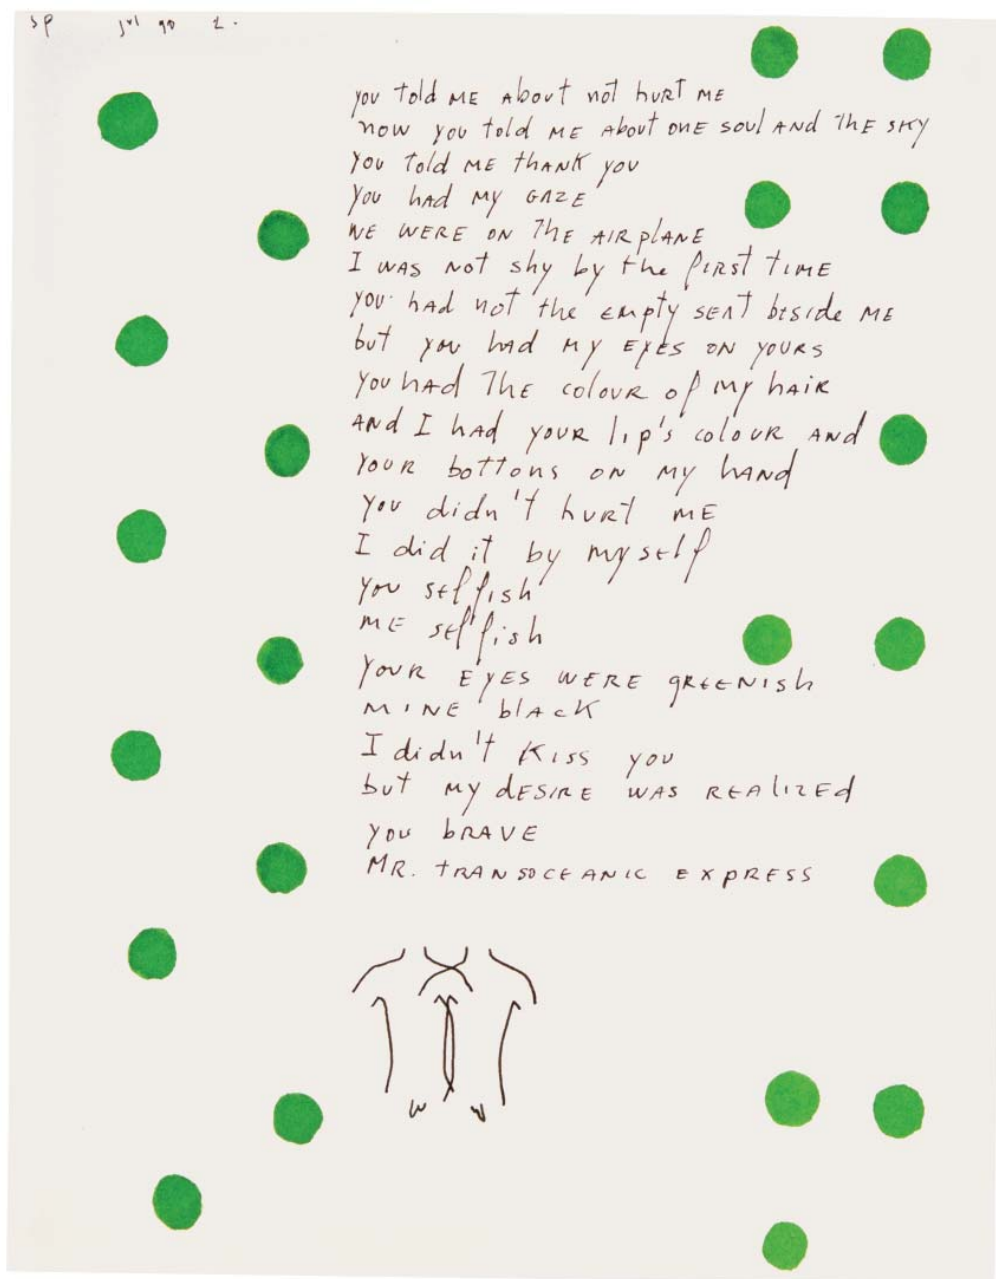 SP jul 90 1.
you told ME About not hurt ME
now you told ME About ONE soul AND THE SKY
you told ME THANK you
you had my GAZE
WE WERE ON THE AIRPLANE
I WAS Not shy by the first TIME
you had not the empty SEAT beside ME
but you had my EYES ON YOURS
you had THE COLOUR of my hAIR
AND I hAd YOUR lip's colour AND
YOUR bottons ON MY hAND
you didn't hurt ME
I did it by myself
you selfish
ME selfish
YOUR EYES WERE GREENISh
MINE blAcK
I didn't Kiss you
but my dESIRE WAS REAlIZEd
you bRAVE
MR. TRANSOCEANIC EXPRESS